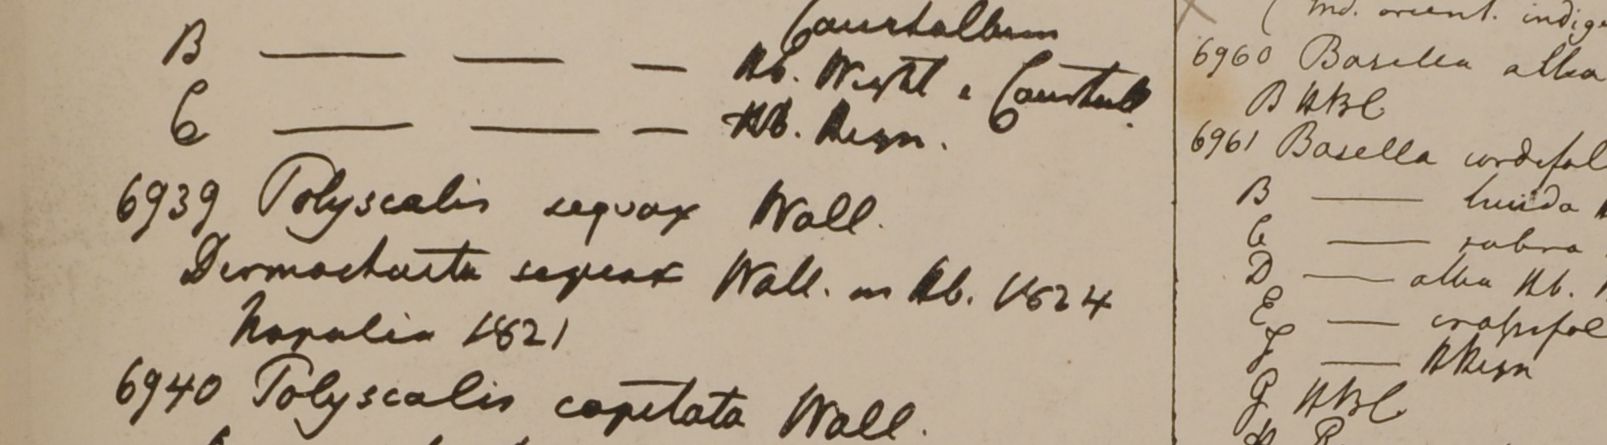 Courtallum
B — — — Hb. Wight & Courtall.
C — — — Hb. Heyn.
6939 Polyscalis sequax Wall.
Dermochaeta sequax Wall. in Hb. 1824
Napalia 1821
6940 Polyscalis capitata Wall.
( Ind. orient. indig
6960 Basella alba
B HBC
6961 Basella cordifol
B — lucida
C — rubra
D — alba Hb.
E — crassifol
F — HHeyn
G HBC